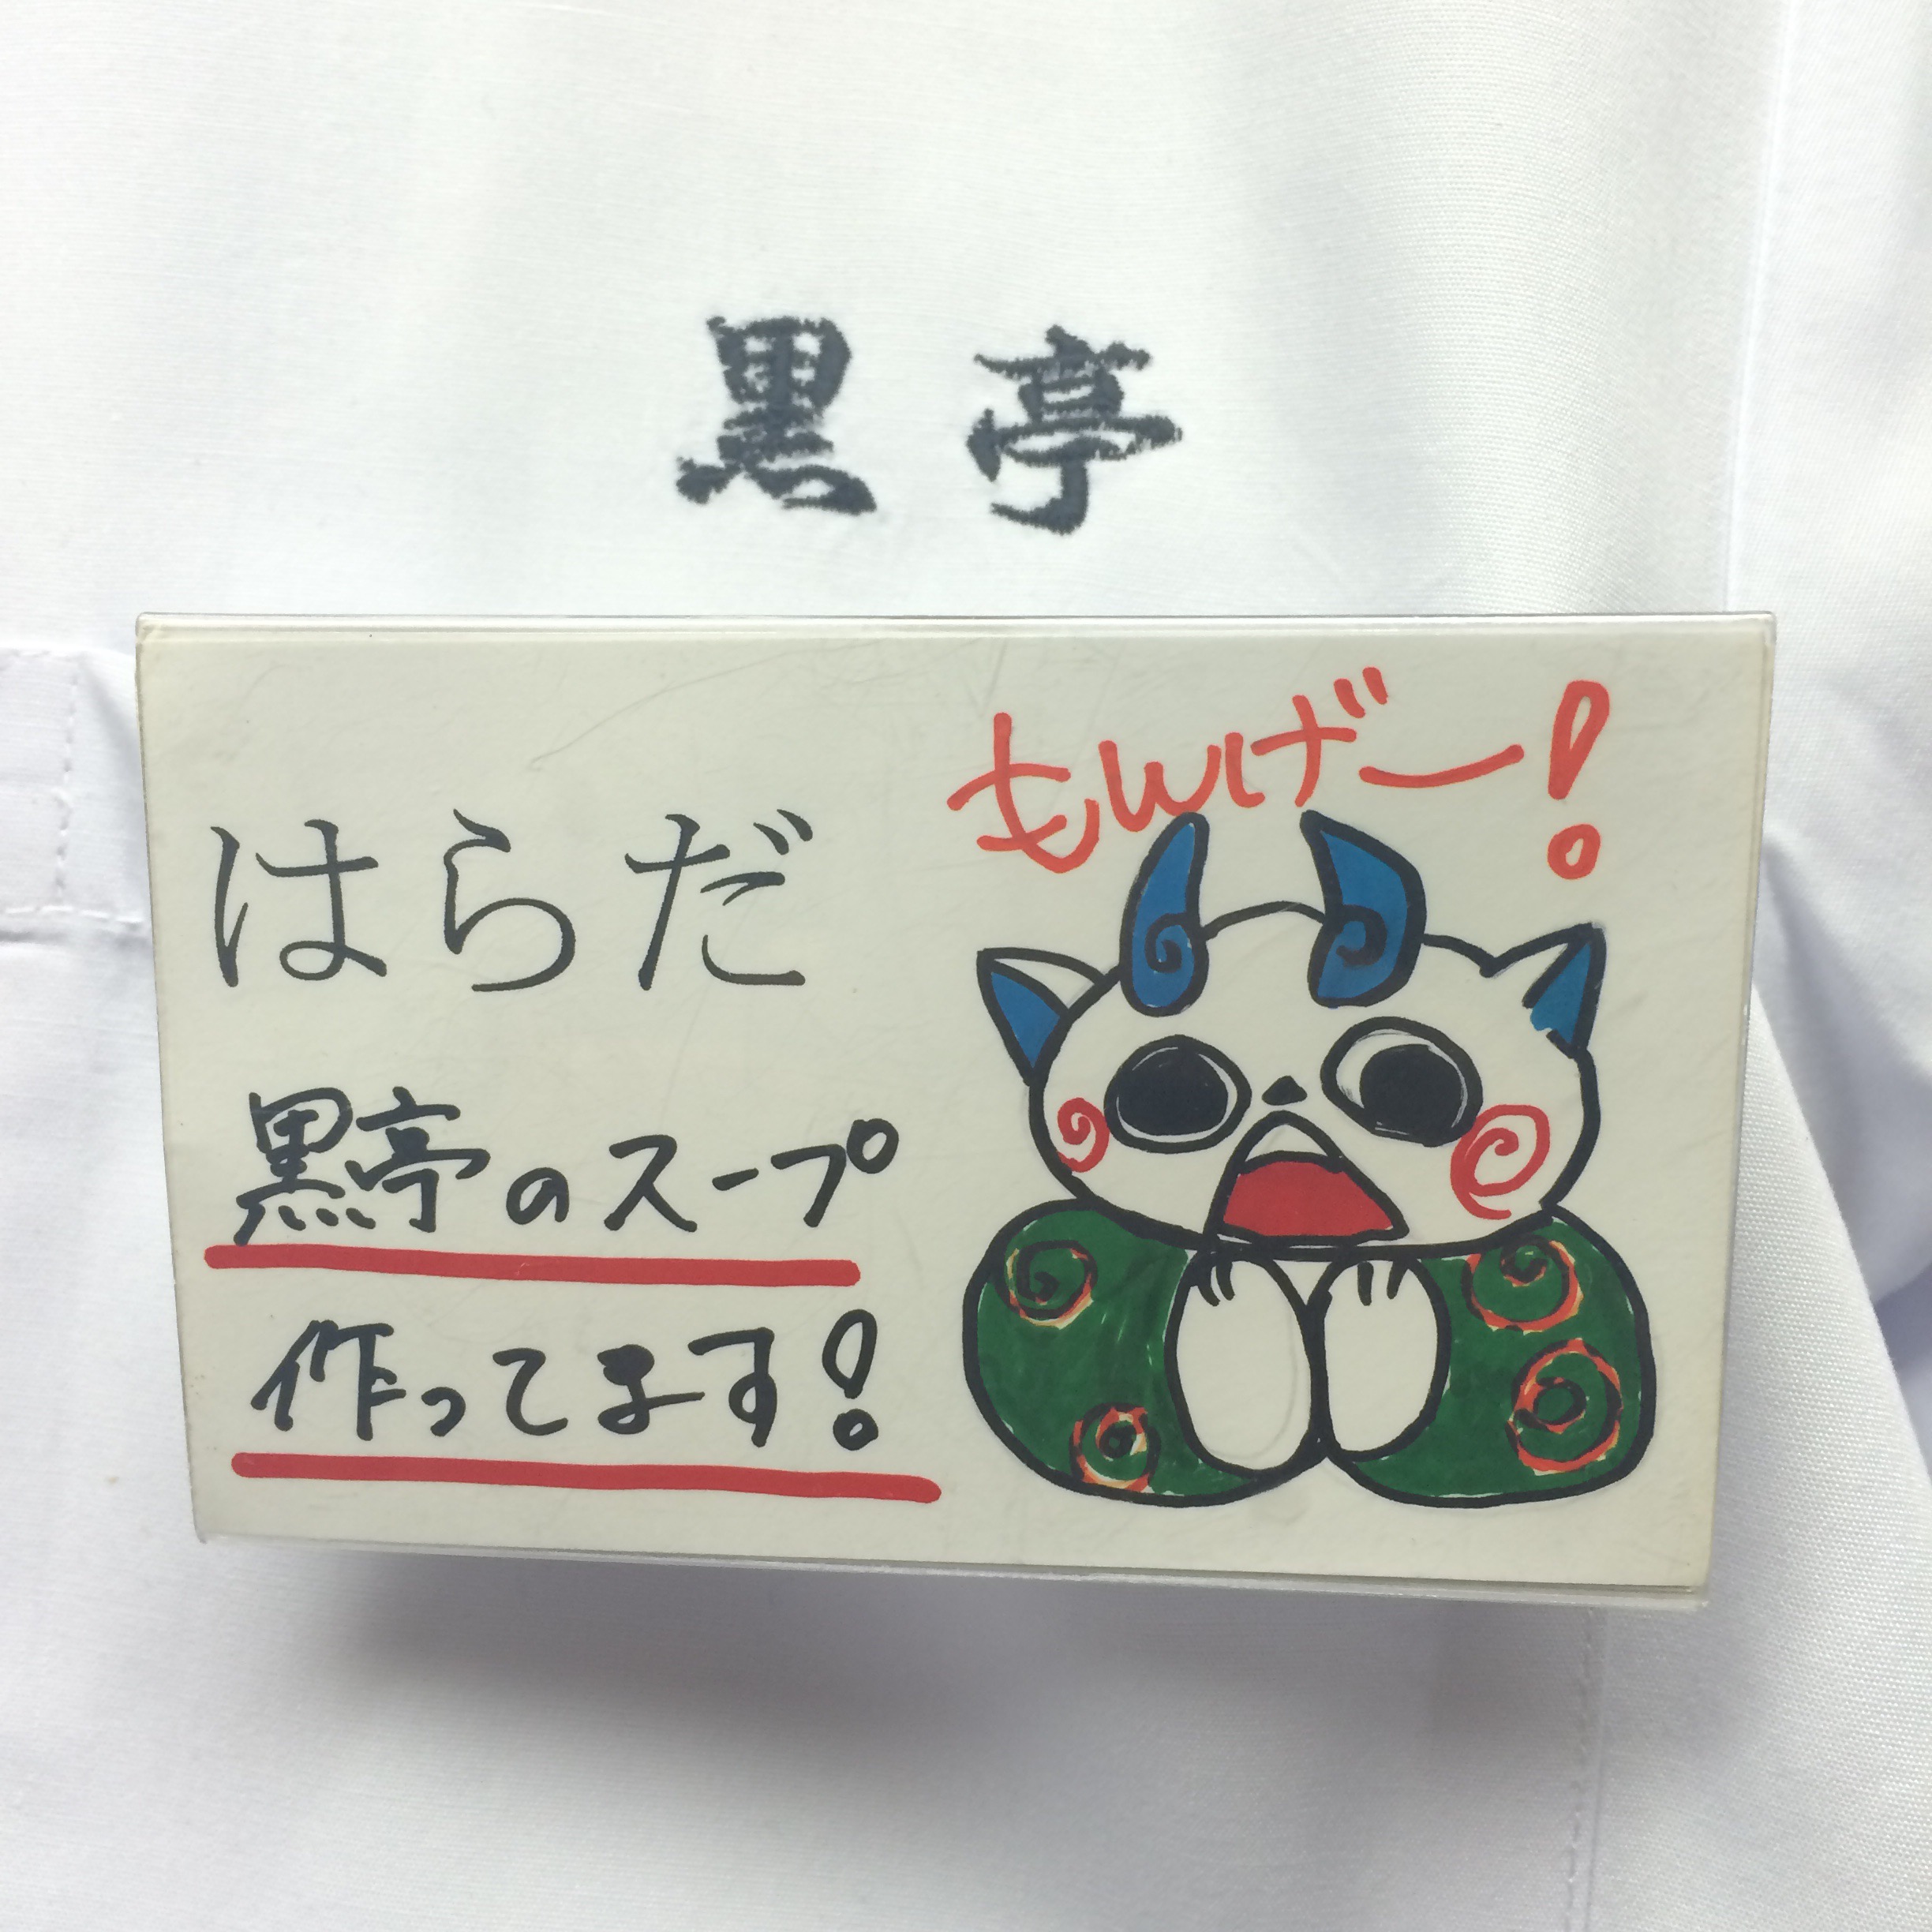 黒亭
もんげー!
はらだ
黒亭のスープ
作ってます!